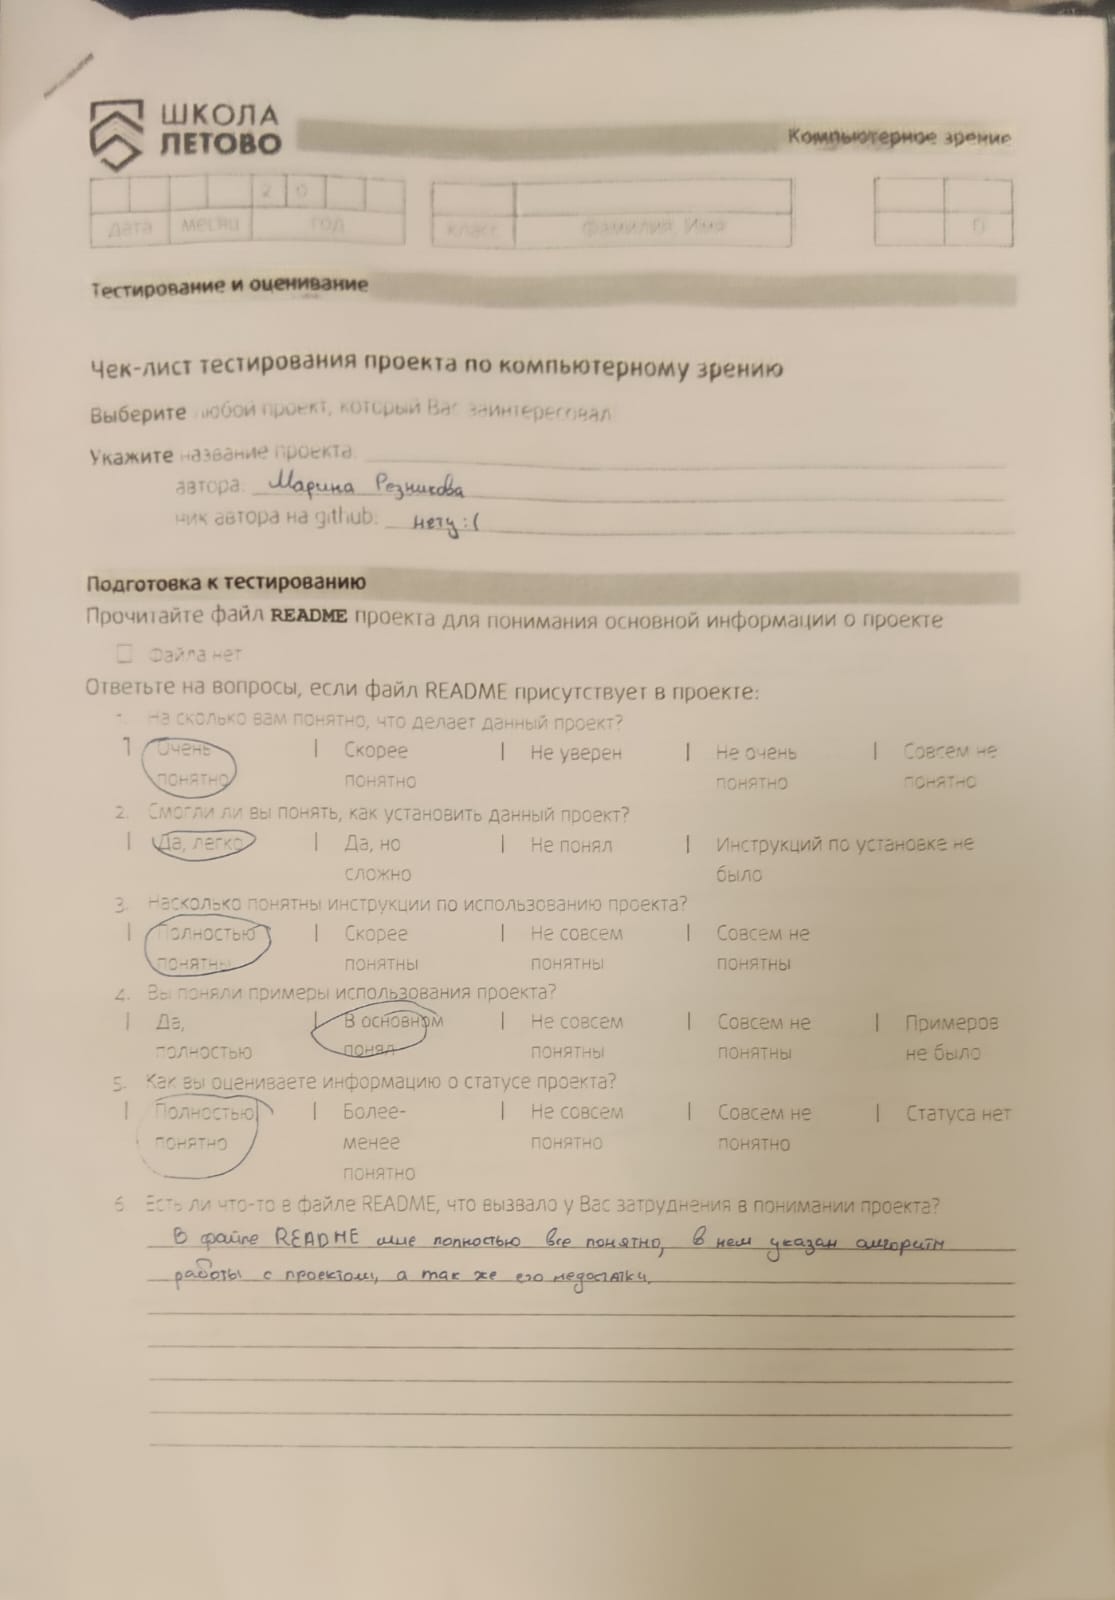 ШКОЛА
ЛЕТОВО
Компьютерное зрение
2 0
дата месяц год класс Фамилия, Имя П
Тестирование и оценивание
Чек-лист тестирования проекта по компьютерному зрению
Выберите любой проект, который Вас заинтересовал
Укажите название проекта:
автора: Марина Резникова
ник автора на github: нету :(
Подготовка к тестированию
Прочитайте файл README проекта для понимания основной информации о проекте
Файла нет
Ответьте на вопросы, если файл README присутствует в проекте:
1. На сколько вам понятно, что делает данный проект?
Очень | Скорее | Не уверен | Не очень | Совсем не
понятно понятно понятно понятно
2. Смогли ли вы понять, как установить данный проект?
| Да, легко | Да, но | Не понял | Инструкций по установке не
сложно было
3. Насколько понятны инструкции по использованию проекта?
| Полностью | Скорее | Не совсем | Совсем не
понятны понятны понятны понятны
4. Вы поняли примеры использования проекта?
| Да, | В основном | Не совсем | Совсем не | Примеров
полностью понял понятны понятны не было
5. Как вы оцениваете информацию о статусе проекта?
| Полностью | Более- | Не совсем | Совсем не | Статуса нет
понятно менее понятно понятно
понятно
6. Есть ли что-то в файле README, что вызвало у Вас затруднения в понимании проекта?
В файле README мне полностью все понятно, в нем указан алгоритм
работы с проектом, а так же его недостатки.